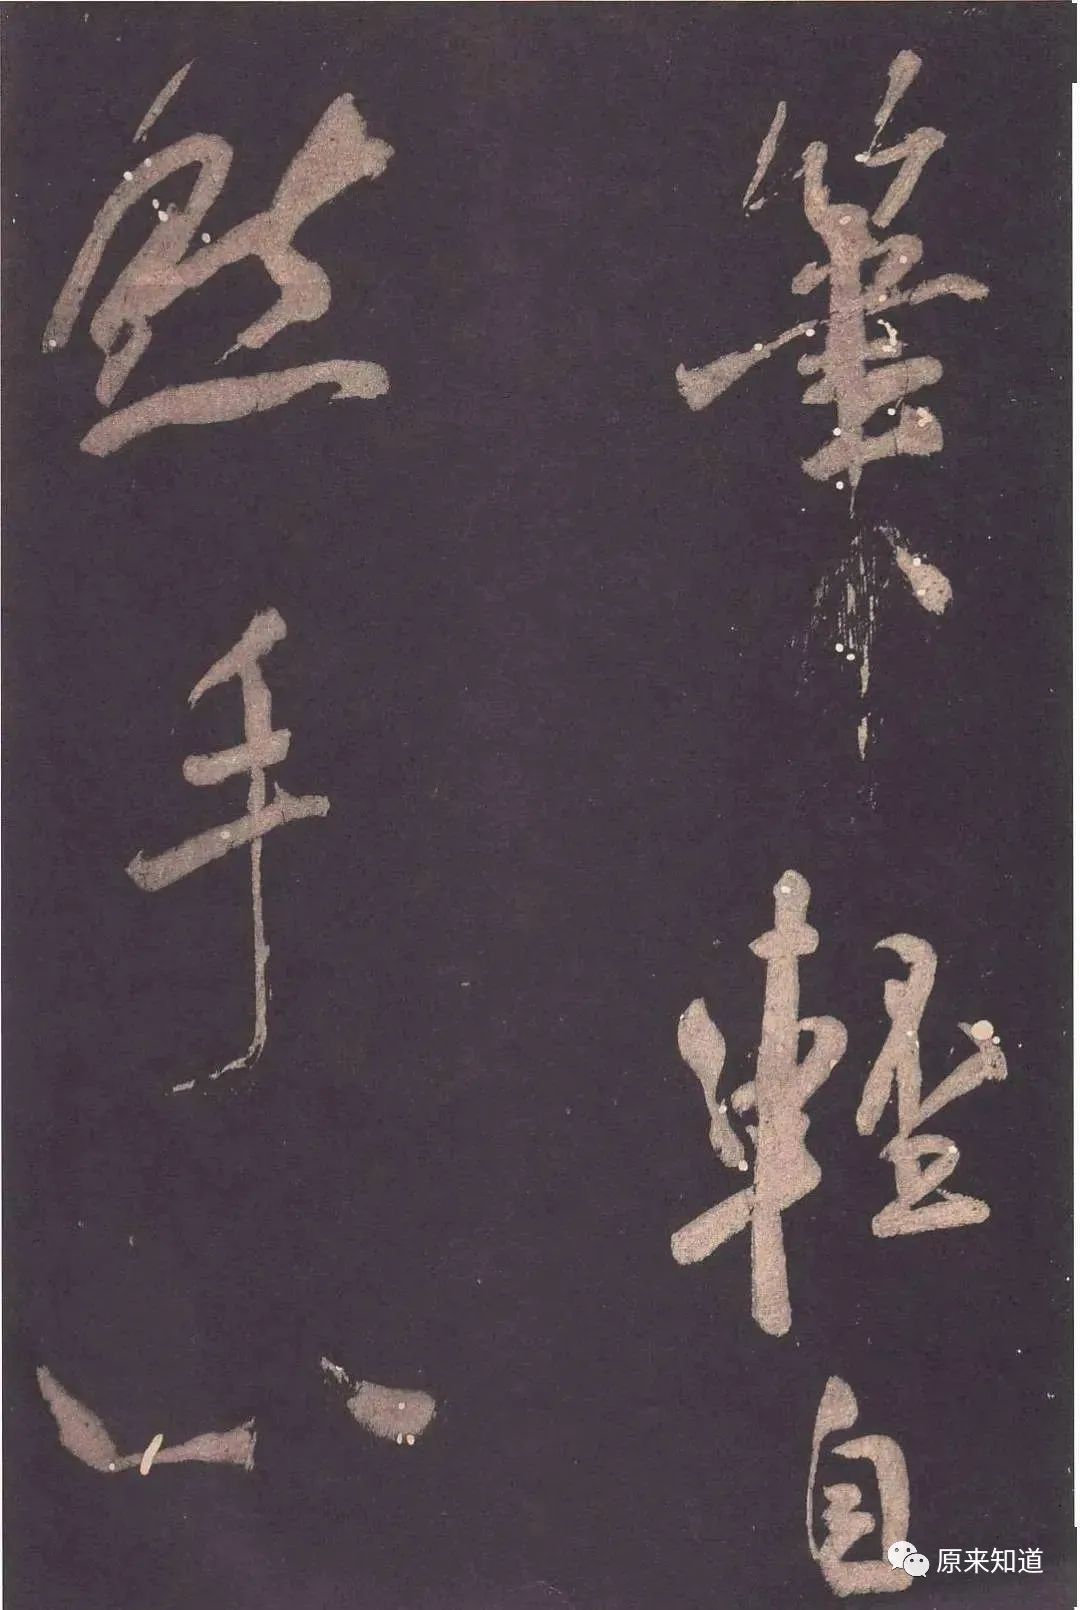 筆輕自
然手心
原来知道